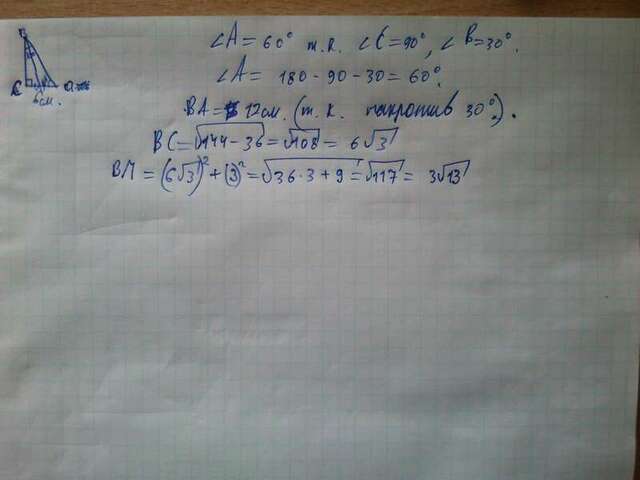 ∠A = 60° т.к. ∠C = 90°, ∠B = 30°.
∠A = 180 - 90 - 30 = 60°.
BA = 12см. (т.к. напротив 30°).
BC = √144 - 36 = √108 = 6√3
BM = (6√3)² + (3)² = √36·3 + 9 = √117 = 3√13
C
6см.